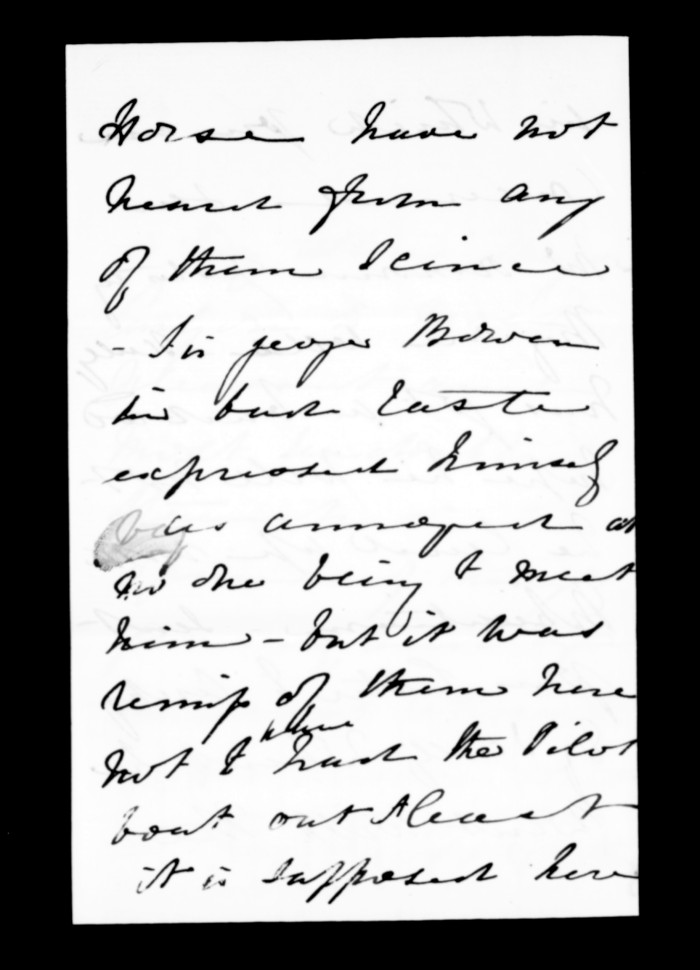 Horse have not
heard from any
of them Scince
- Sir george Bowen
in bad Taste
expressed himself
as annoyed at
no one being to meet
him - but it was
remiss of them here
not to have had the Pilot
boat out at least
it is supposed here